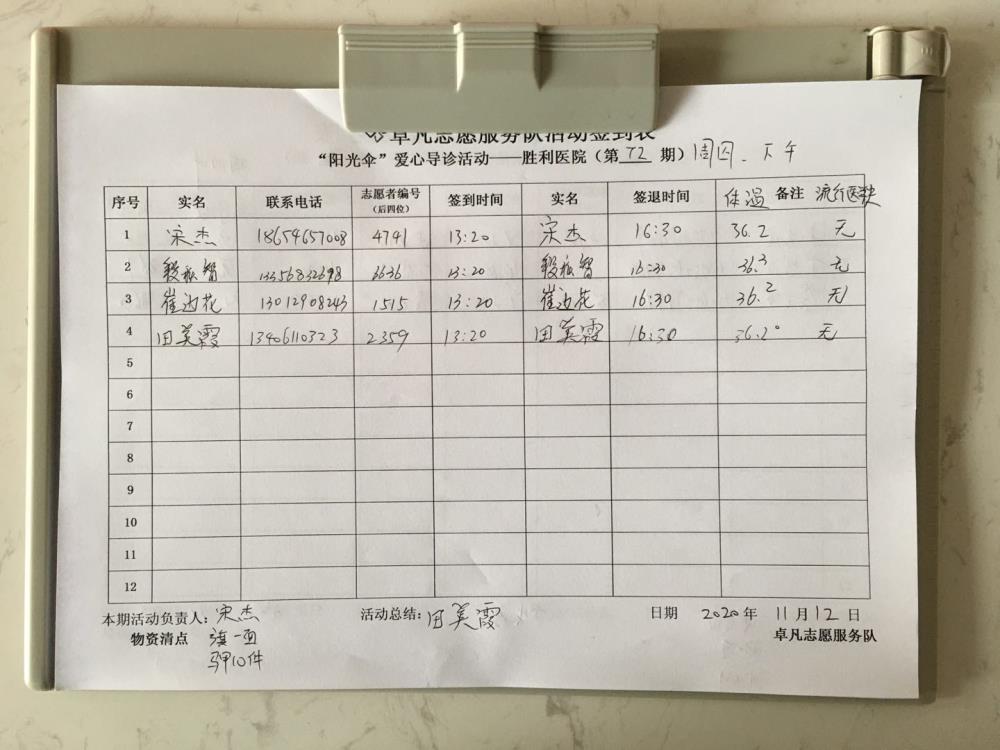 卓凡志愿服务队活动签到表
“阳光伞”爱心导诊活动——胜利医院（第 72 期）周四、下午
序号 实名 联系电话 志愿者编号（后四位） 签到时间 实名 签退时间 体温 备注 流行医缺
1 宋杰 18654657008 4741 13:20 宋杰 16:30 36.2 无
2 智 6636 13:20 智 16:30 36.3 无
3 崔边花 13012908243 1515 13:20 崔边花 16:30 36.2 无
4 田美霞 13406110323 2359 13:20 田美霞 16:30 36.2° 无
5
6
7
8
9
10
11
12
本期活动负责人：宋杰 活动总结：田美霞 日期 2020年 11月12日
物资清点 旗一面 卓凡志愿服务队
马甲10件